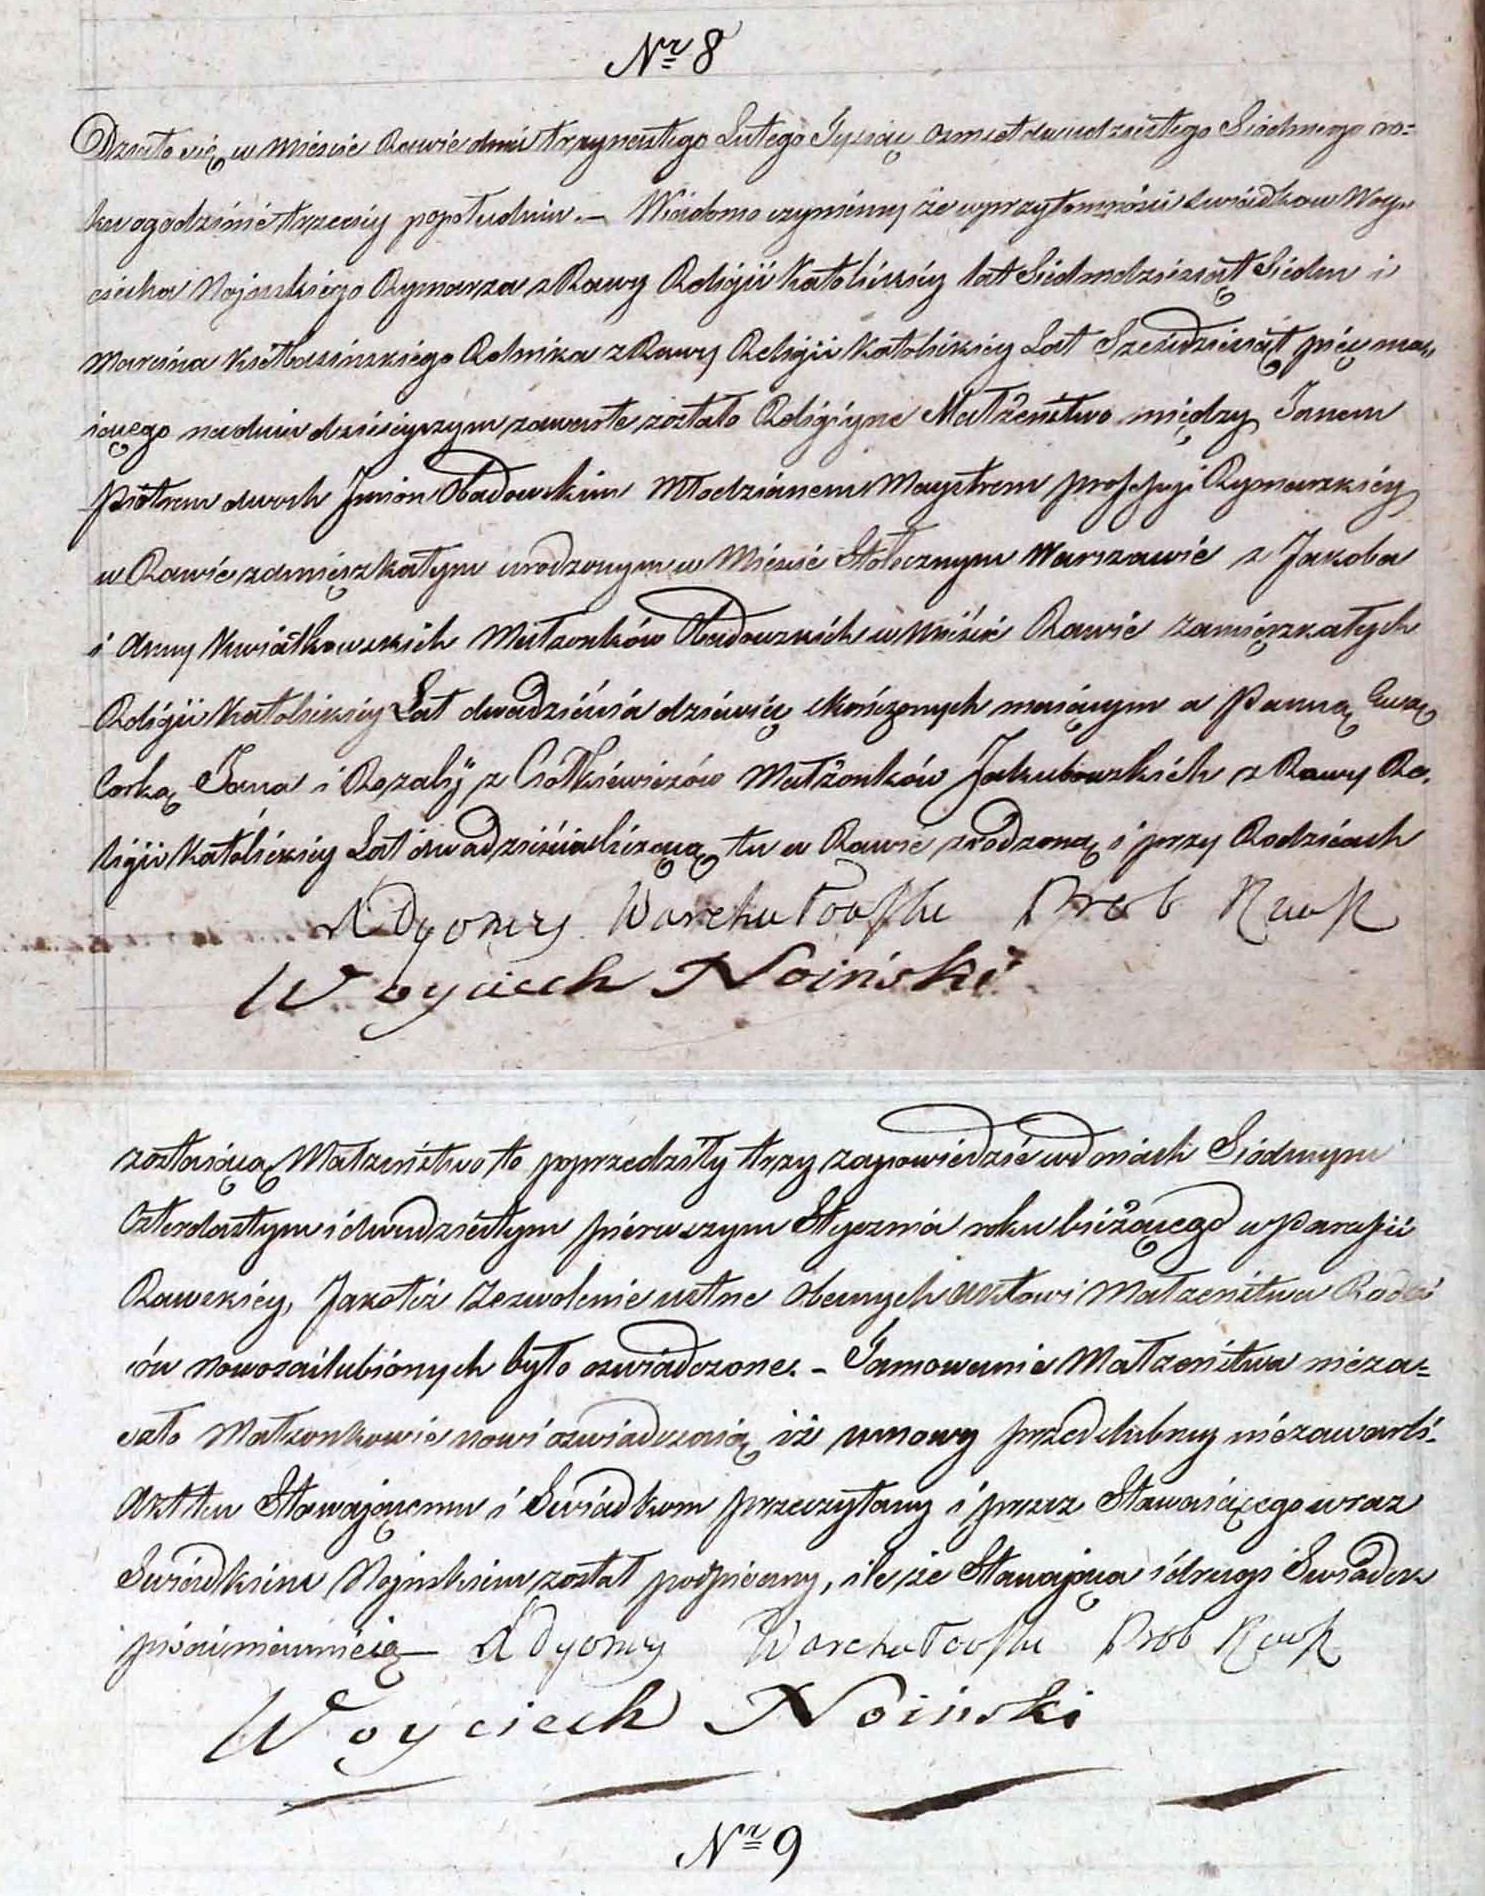 Nr 8
Działo się w Mieście Rawie dnia trzynastego Lutego Tysiąc osmset dwudziestego Siodmego ro=
ku o godzinie trzeciy popołudniu. – Wiadomo czyniemy że w przytomności swiadkow Woy=
ciecha Nojnskiego Rymarza z Rawy Religii Katolickiey lat Siedmdziesiąt Siedm i
Marcina Kiełbasińskiego Rolnika z Rawy Religii Katolickiey Lat Sześćdziesiąt pięć ma=
iącego na dniu dzisieyszym zawarte zostało Religiyne Małżeństwo między Janem
Piotrem dwoch Imion Obadowskim Młodzianem Maystrem professyi Rymarskiey
w Rawie zamięszkałym urodzonym w Mieście Stołecznym Warszawie z Jakoba
i Anny Kwiatkowskich Małżonków Obadowskich w Mieście Rawie zamięszkałych
Religii Katolickiey Lat dwadzieścia dziewięć skończonych maiącym a Panną Ewą
Corką Jana i Rozalij z Ciołkiewiczów Małżonków Jakubowskich z Rawy Re=
ligii Katolickiey Lat dwadzieścia liczącą tu w Rawie zrodzoną i przy Rodzicach
X Dyonizy Warchałowski Prob Rawsk
Woyciech Noiński
zostaiącą Małżeństwo to poprzedziły trzy zapowiedzie w dniach Siódmym
Czternastym i dwudziestym pierwszym Stycznia roku bieżącego w Parafii
Rawskiey, Jakoteż Zezwolenie ustne obecnych Aktowi Małżeństwa Rodzi
ców nowozaślubionych było oswiadczone. – Tamowanie Małżeństwa nieza=
szło Małżonkowie nowi oswiadczaią iż umowy przedslubney niezawarli.
Akt ten Stawaiącemu i Swiadkom przeczytany i przez Stawaiącego wraz
Swiadkiem Nojnskiem został podpisany, ile że Stawaiąca i drugi Swiadek
pisać nieumieią – X Dyonizy Warchałowski Prob Rawsk
Woyciech Noiński
Nr 9